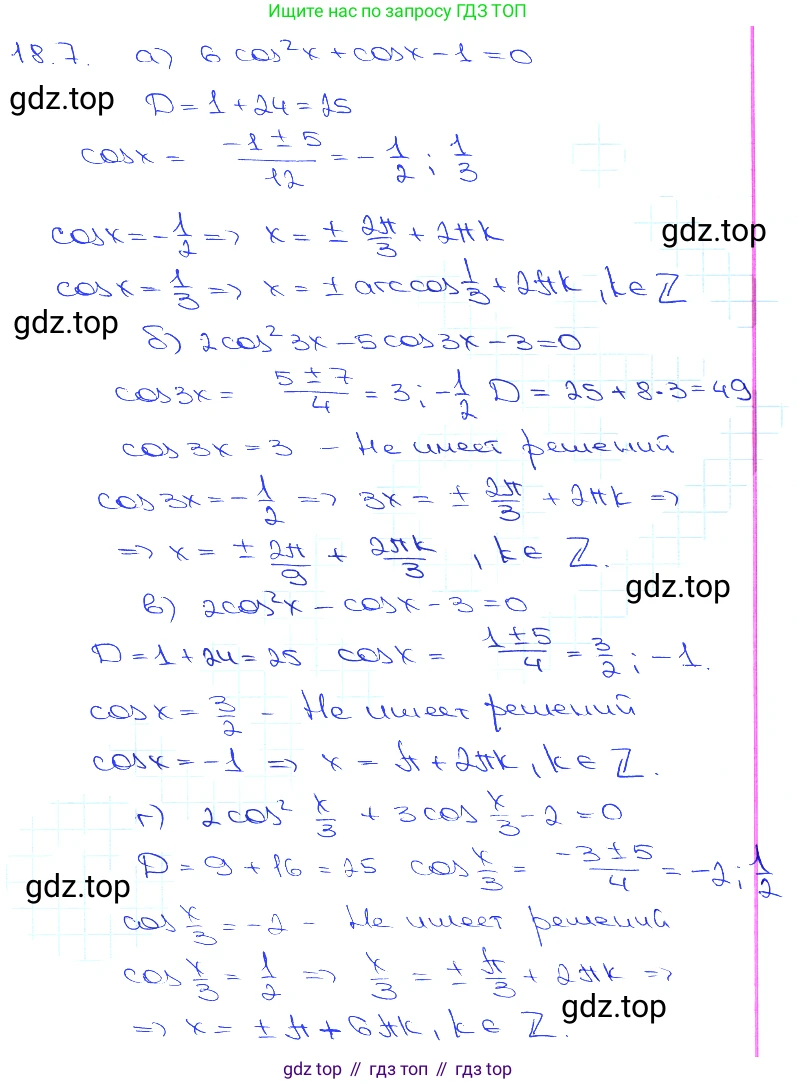 Ищите нас по запросу ГДЗ ТОП
18.7. а) 6 cos²x + cosx - 1 = 0
gdz.top
D = 1 + 24 = 25
cosx = (-1 ± 5)/12 = -1/2 ; 1/3
cosx = -1/2 => x = ± 2π/3 + 2πk
gdz.top
cosx = 1/3 => x = ± arccos 1/3 + 2πk, k ∈ Z
gdz.top
б) 2cos² 3x - 5cos3x - 3 = 0
cos3x = (5 ± 7)/4 = 3 ; -1/2 D = 25 + 8·3 = 49
cos 3x = 3 - Не имеет решений
cos 3x = -1/2 => 3x = ± 2π/3 + 2πk =>
=> x = ± 2π/9 + 2πk/3, k ∈ Z.
gdz.top
в) 2cos²x - cosx - 3 = 0
D = 1 + 24 = 25 cosx = (1 ± 5)/4 = 3/2 ; -1.
cosx = 3/2 - Не имеет решений
cosx = -1 => x = π + 2πk, k ∈ Z.
г) 2cos² x/3 + 3cos x/3 - 2 = 0
D = 9 + 16 = 25 cos x/3 = (-3 ± 5)/4 = -2 ; 1/2
gdz.top
cos x/3 = -2 - Не имеет решений
cos x/3 = 1/2 => x/3 = ± π/3 + 2πk =>
gdz.top
=> x = ± π + 6πk, k ∈ Z.
gdz top // гдз топ // gdz top